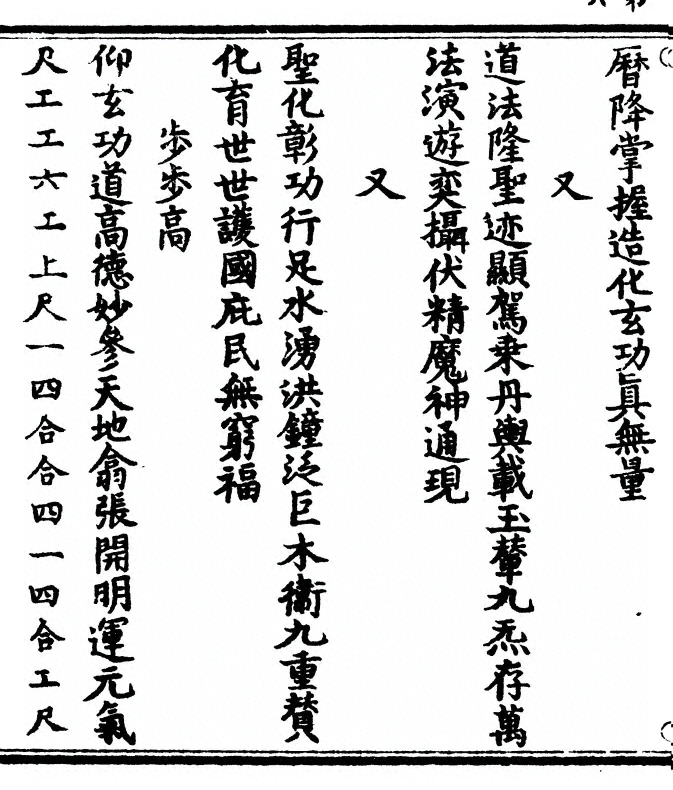 曆降掌握造化玄功眞無量
又
道法隆聖迹顯駕乗丹輿載玉輦九炁存萬
法演遊奕攝伏精魔神通現
又
聖化彰功行足水湧洪鐘泛巨木衞九重賛
化育世世護國庇民無窮福
歩歩高
仰玄功道高德妙參天地翕張開明運元氣
尺工工六工上尺一四合合四一四合工尺